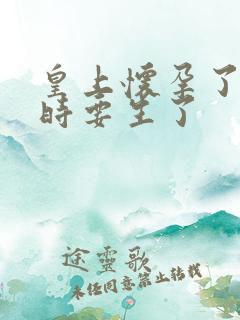 皇上懷孕了
時要生了
途靈歌
未经同意禁止转载